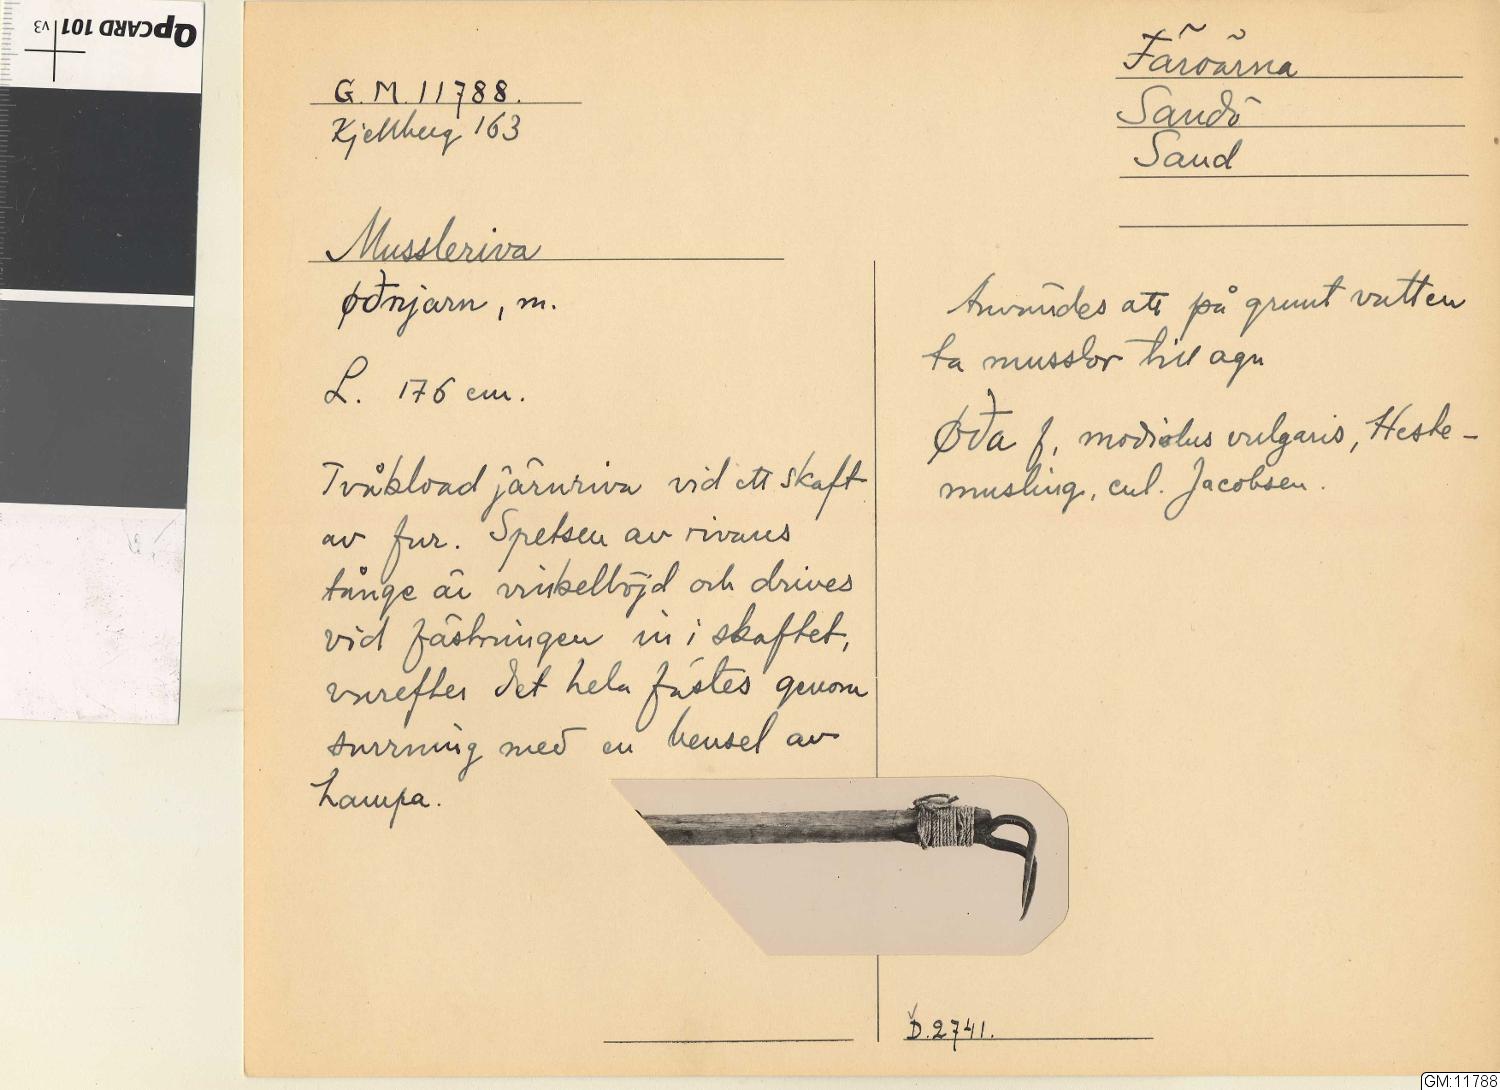 QpCARD 101 v3
G.M. 11788.
Kjellberg 163
Färöarna
Sandö
Sand
Mussleriva
øðnjarn, m.
L. 176 cm.
Tvåkload järnriva vid ett skaft
av fur. Spetsen av rivans
tånge är vinkelböjd och drives
vid fästningen in i skaftet,
varefter det hela fästes genom
surrning med en bensel av
hampa.
Användes att på grunt vatten
ta musslor till agn
Øða f, modiolus vulgaris, Heste-
musling, enl. Jacobsen.
D.2741.
GM:11788